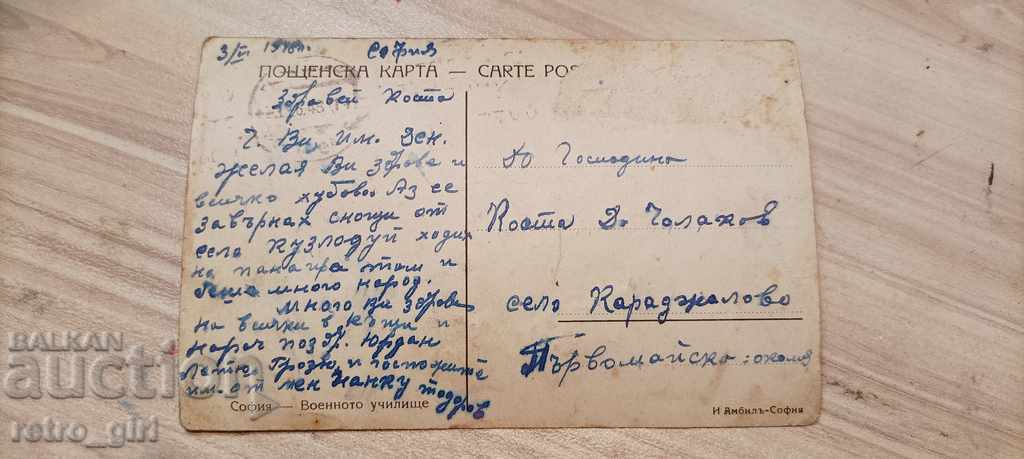 3/VI 1948 г. София
ПОЩЕНСКА КАРТА — CARTE POS
Здравей Коста
Ч. Ви им. Ден.
желая Ви здраве и
всичко хубаво. Аз се
завърнах снощи от
село Кузлодуй ходих
на панаира там и
беше много народ.
Много Ви здраве
на всички в къщи и
нароч позд. Юрдан
Петю, Грозю, и госпожите
им. от мен Нанку Тодоров
София — Военното училище
До Господина
Коста Д. Чолаков
село Караджалово
Първомайска околия
И Амбиль-София
BALKAN
auction
retro_girl